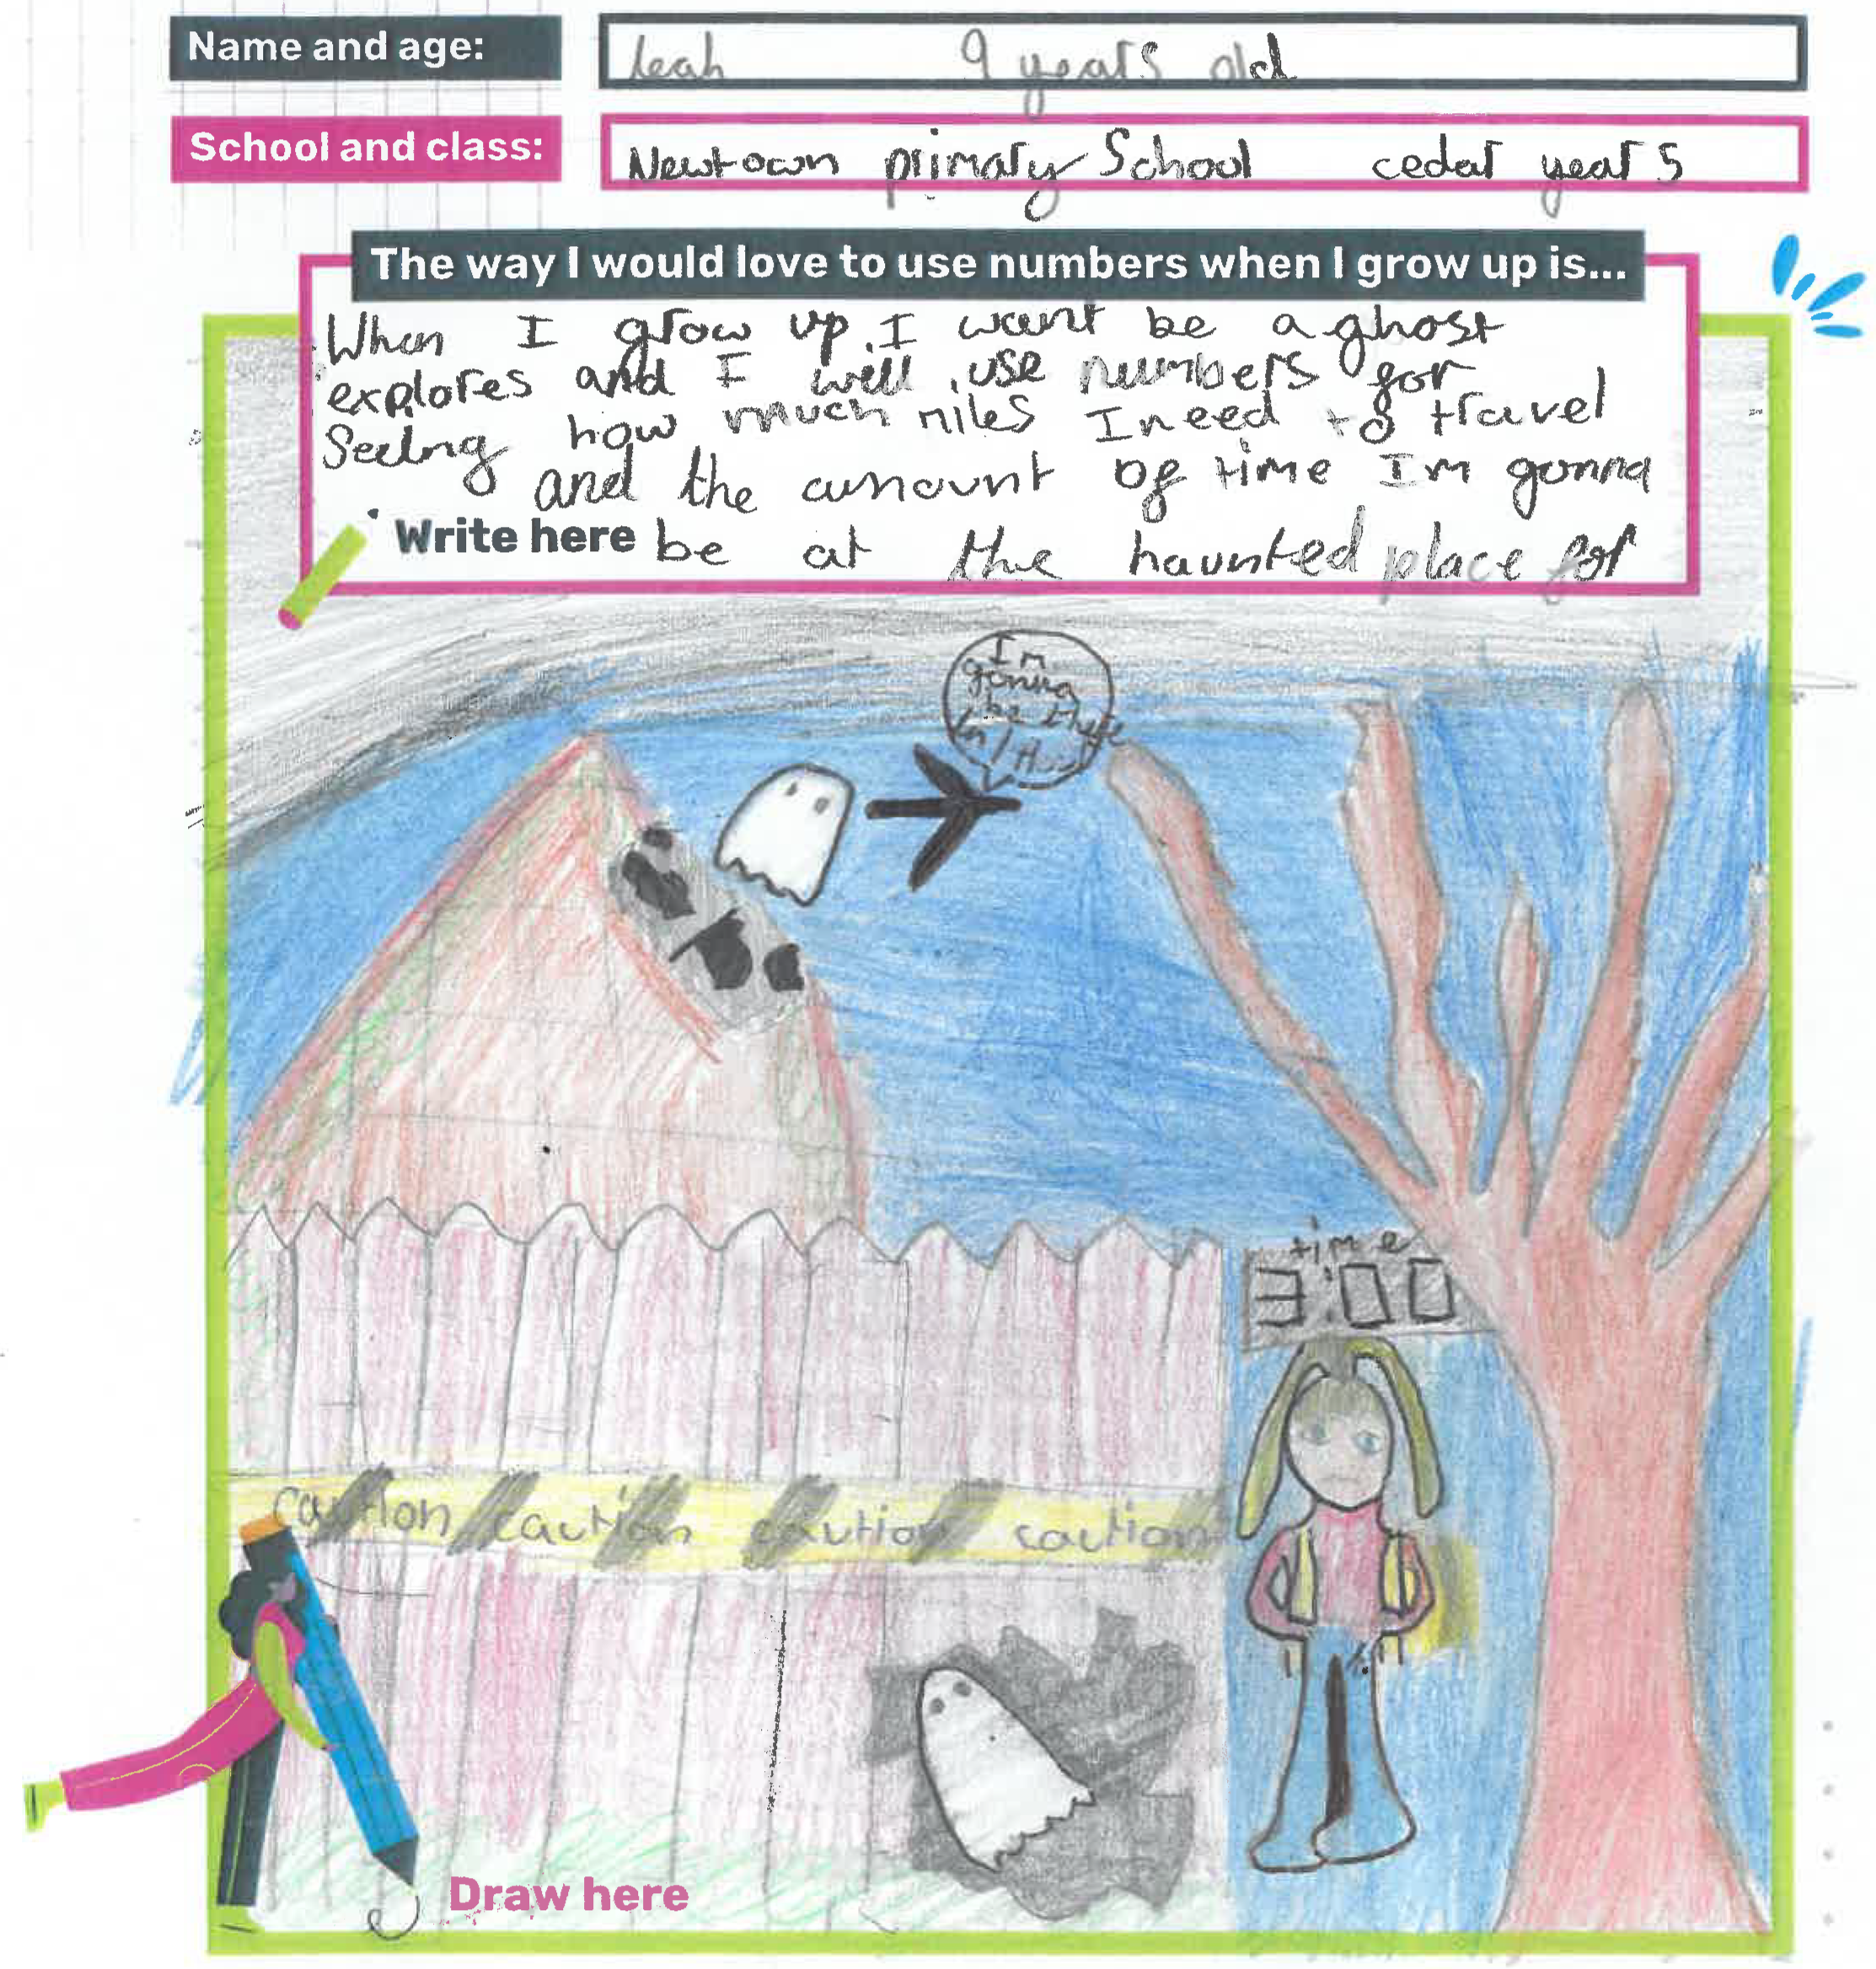 Name and age:
leah 9 years old
School and class:
Newtown primary School cedar year 5
The way I would love to use numbers when I grow up is...
When I grow up, I want be a ghost
explores and I well use numbers for
Seeing how much miles I need to travel
and the amount of time Im gonna
Write here be at the haunted place for
Im
gonna
be there
in 1
time
3:00
caution caution caution caution
Draw here